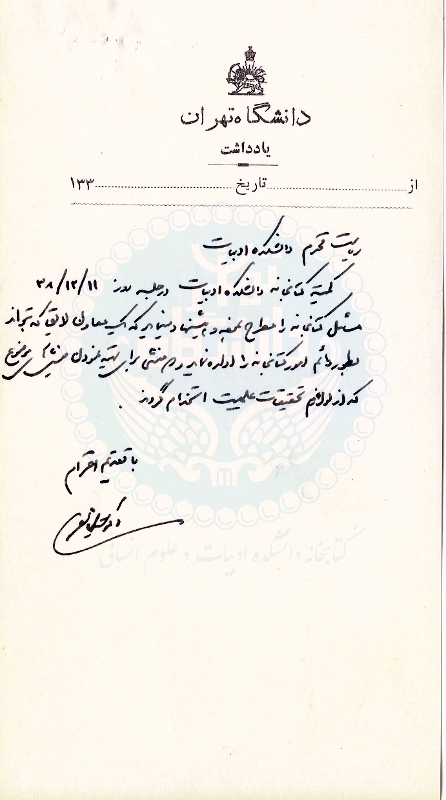 دانشگاه تهران
یادداشت
از ............ تاریخ ............ ۱۳۳
ریاست محترم دانشکده ادبیات
کمیته کتابخانه دانشکده ادبیات در جلسه روز ۳۸/۱۲/۱۱
مسائل کتابخانه را مطرح نموده و پیشنهاد مینماید که یک معاون لایق که بتواند
بطور دائم امور کتابخانه را اداره نماید و منشی برای تهیه موضوع
که از لوازم تحقیقات علمیست استخدام گردد.
با تقدیم احترام
دکتر
کتابخانه دانشکده ادبیات و علوم انسانی